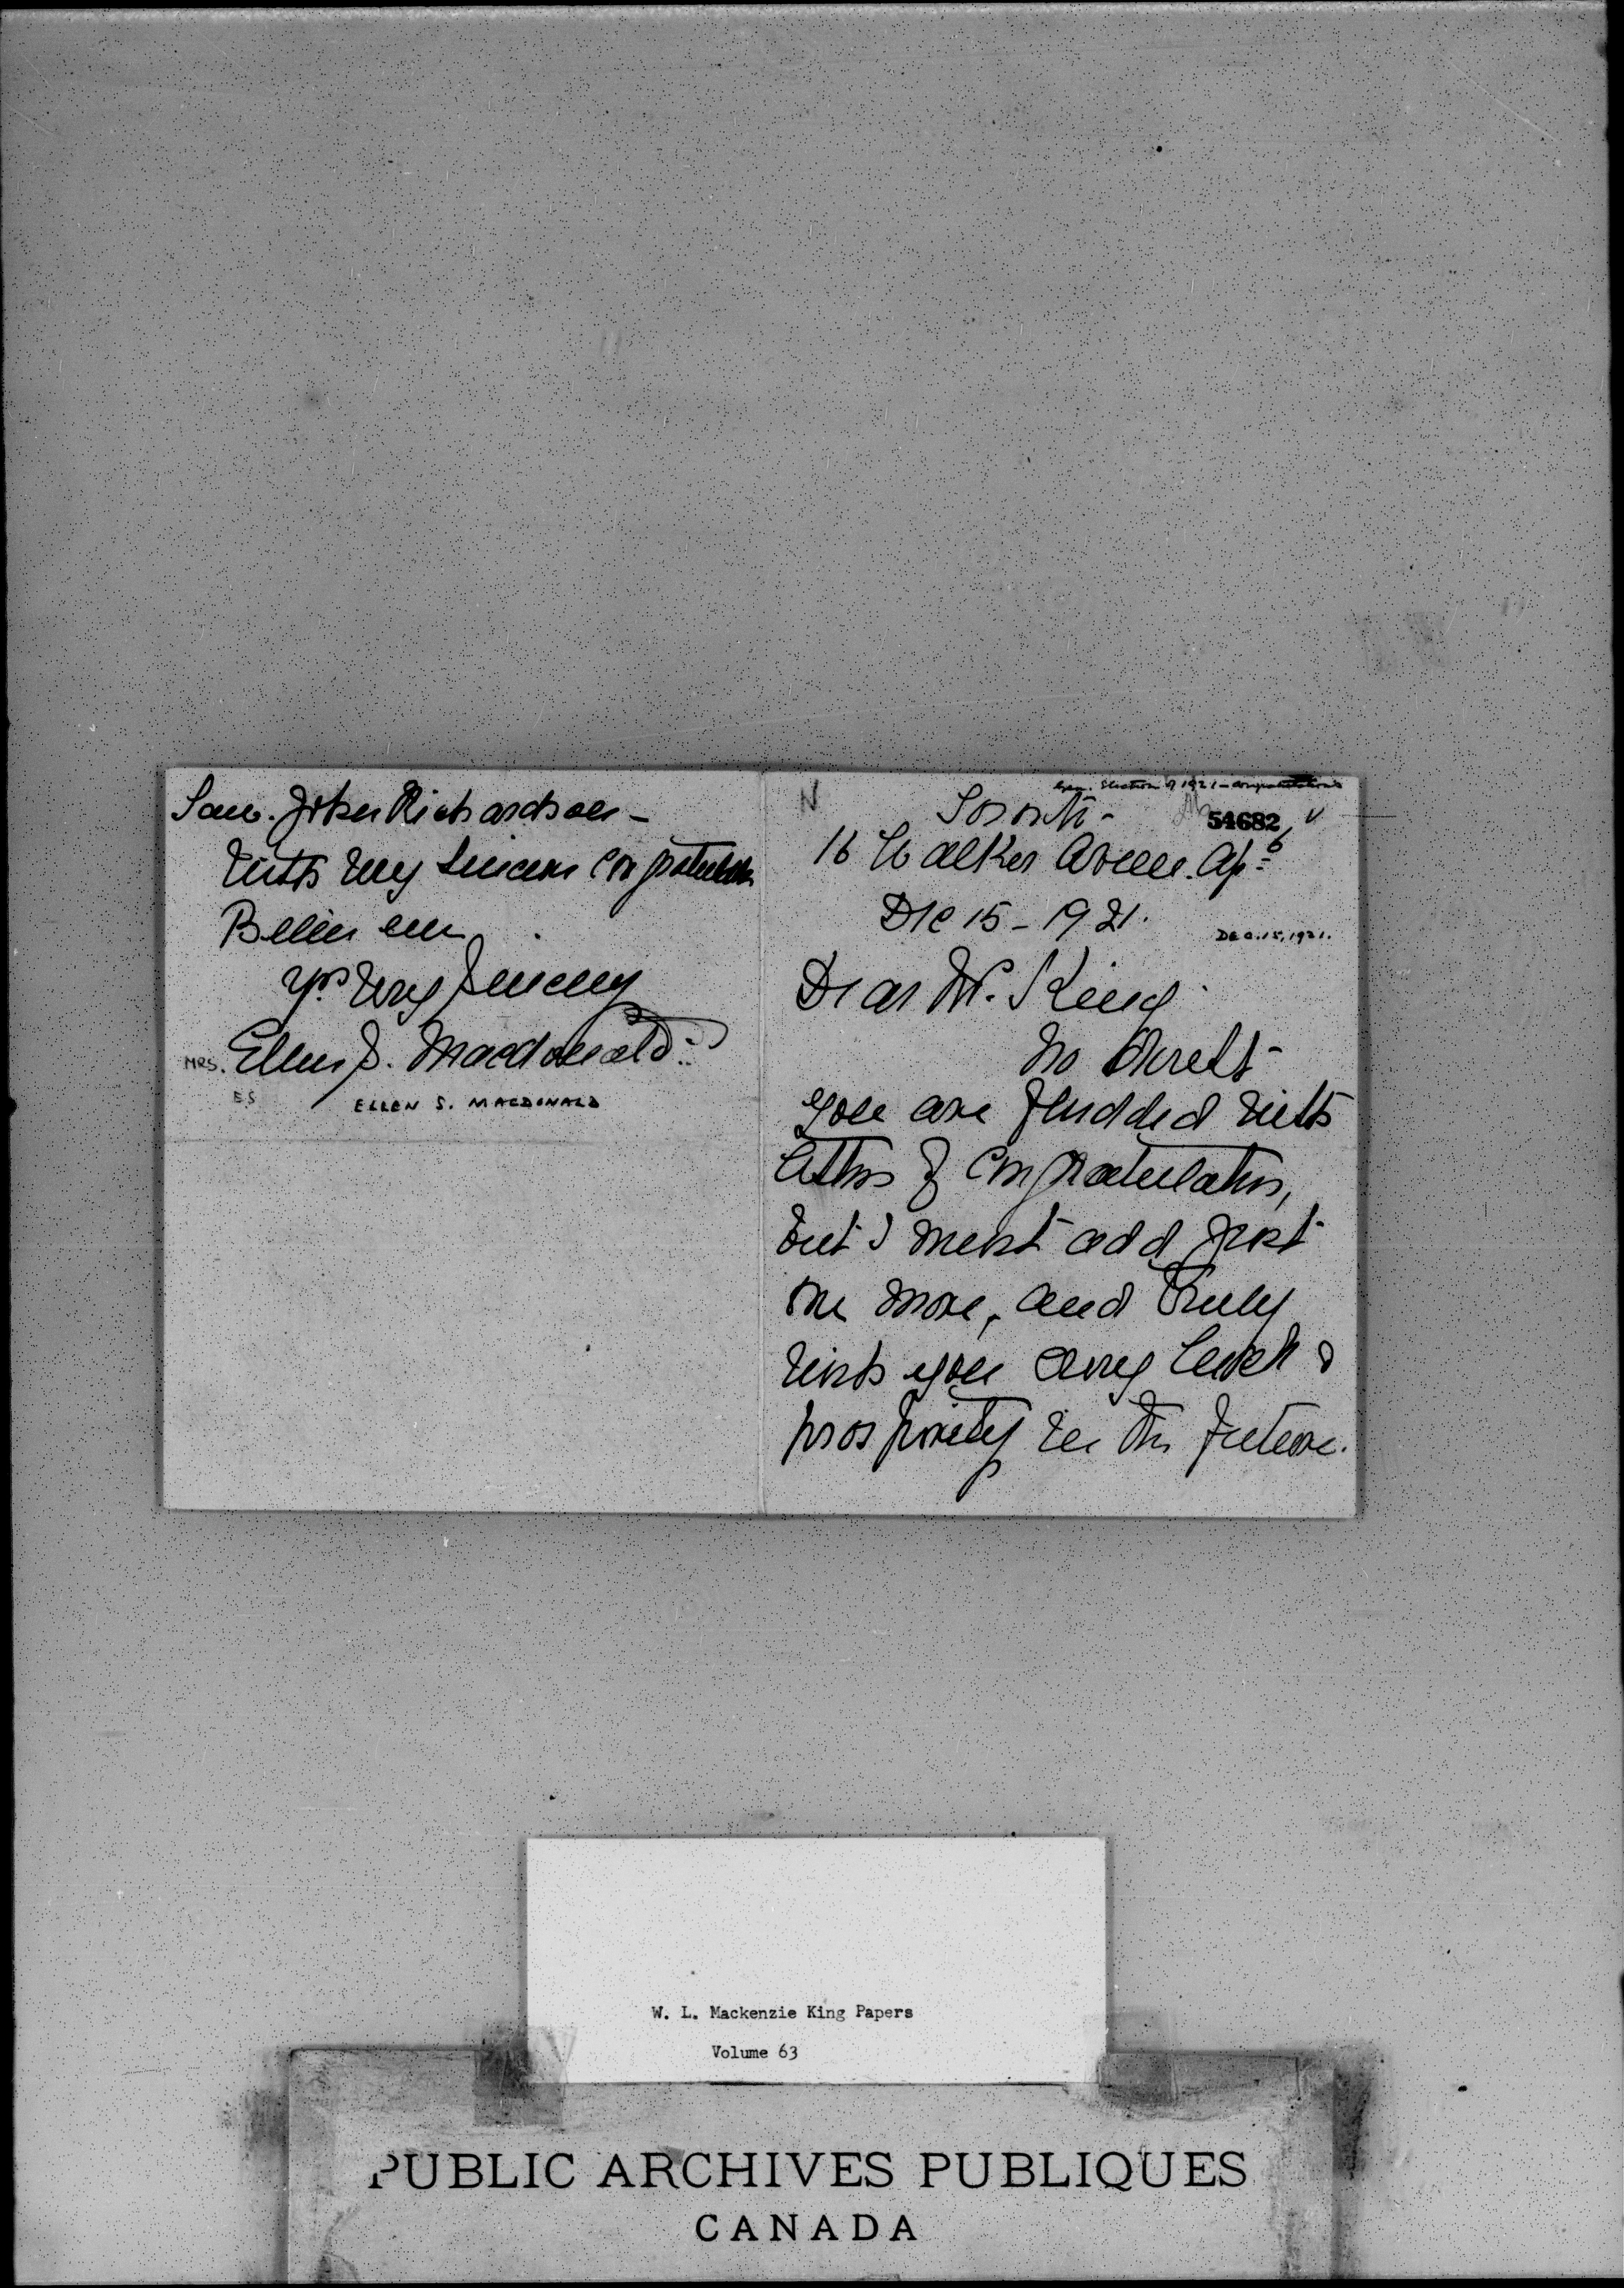 Gen. Election of 1921 - Congratulations
N
54682
Toronto -
16 Walker Avenue. Ap. 6
Dec 15 - 1921.
DEC. 15, 1921.
Dear Mr. King
No doubt
you are flooded with
letters of congratulations,
but I must add just
one more, and truly
wish you every luck &
prosperity in the future.
John Richardson -
With very sincere congratulations
Believe me
Yrs very sincerely
MRS. Ellen S. Macdonald
E.S
ELLEN S. MACDONALD
W. L. Mackenzie King Papers
Volume 63
PUBLIC ARCHIVES PUBLIQUES
CANADA